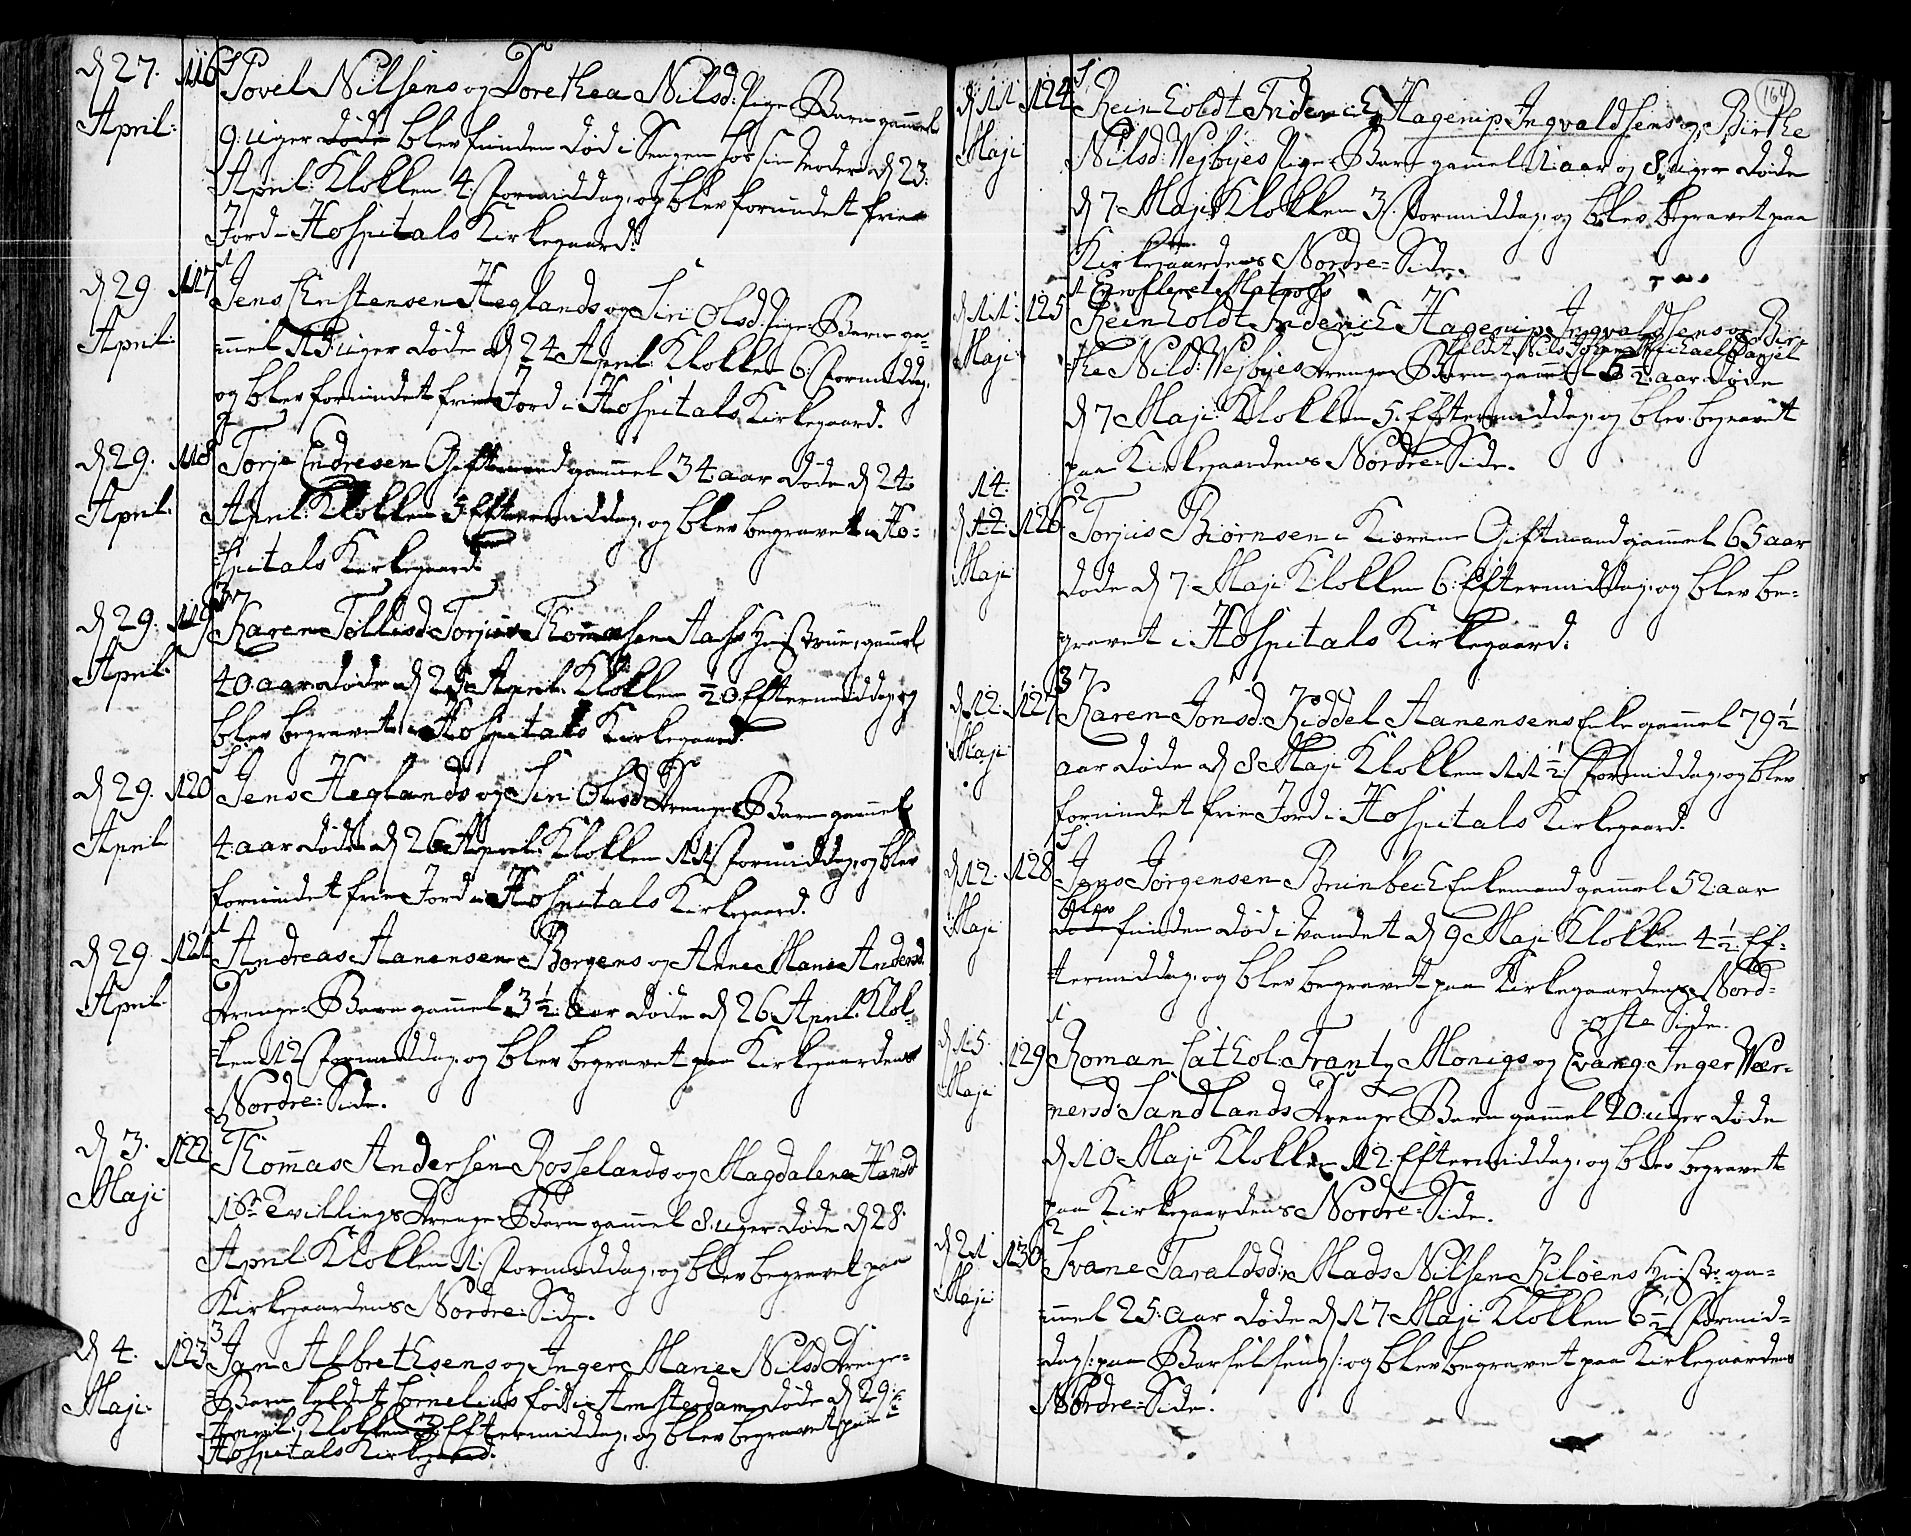 d 27. 116 Povel Nilsens og Dorethea Nilsd: Pige-Barn gammel
April: 9: uger døde blev funden død i Sengen hos sin Moder d 23.
April: Klokken 4: Formiddag, og blev forundet frie
Jord i Hospitals Kirkegaard.
d 29 117 Jens Christensen Heglands og Siri Olsd: Pige-Barn ga-
April: mmel 13 uger døde d 24 April: Klokken 6: Formiddag,
og blev forundet frie Jord i Hospitals Kirkegaard.
d 29. 118 Torje Endresen Giftmand gammel 34 aar døde d 24:
April: April: Klokken 5 Eftermiddag, og blev begravet i Ho-
spitals Kirkegaard.
d 29. 119 Karen Tollisd Torjus Thomasen Aas Hustrue, gammel
April: 40 aar døde d 25 April: Klokken Eftermiddag og
blev begravet i Hospitals Kirkegaard.
d 29. 120 Jens Heglands og Siri Olsd Drenge-Barn gammel
April 4 aar døde d 26 April: Klokken 11 Formiddag, og blev
forundet frie Jord i Hospitals Kirkegaard.
d 29. 121 Andreas Aanensen Borgens og Anne Marie Andersd
April Drenge-Barn gammel 3 1/2 aar døde d 26 April: Klok-
ken 12 Formiddag, og blev begravet paa Kirkegaardens
Nordre-Side.
d 3. 122 Thomas Andersen Rosselands og Magdalena Hansd
Maji 1ste Tvillings Drenge-Barn gammel 8 uger døde d 28.
April Klokken 1: Formiddag, og blev begravet paa
Kirkegaardens Nordre-Side.
d 4. 123 Jan Albrethsens og Inger Marie Nilsd Drenge-
Maji: Barn kaldet Cornelius fød i Amsterdam døde d 29:
April: Klokken 3 Eftermiddag, og blev begravet paa
Hospitals Kirkegaard.
164
d 11 124 Reinholdt Friderich Hagerup Ingvaldsens og Birthe
Maji Nilsd: Vejbyes Pige-Barn gammel 1 aar og 8 uger døde
d 7 Maji Klokken 3: Formiddag, og blev begravet paa
Kirkegaardens Nordre-Side.
Enrolleret Matros
d 11: 125 Reinholdt Friderich Hagerup Ingvaldsens og Bir-
kaldet Nils Johan Michael Daniel
Maji the Nilsd: Vejbyes Drenge-Barn gammel 5 1/2 aar døde
d 7 Maji Klokken 5. Eftermiddag, og blev begravet
paa Kirkegaardens Nordre-Side.
14.
d 12. 126 Torjus Biørnsen i Kierene Giftmand gammel 65 aar
Maji døde d 7 Maji Klokken 6: Eftermiddag, og blev be-
gravet i Hospitals Kirkegaard.
d 12. 127 Karen Jonsd. Kiddel Aanensens Enke gammel 79 1/2
Maji aar døde d 8 Maji Klokken 11 1/2 Formiddag, og blev
forundet frie Jord i Hospitals Kirkegaard.
d 12. 128 Jens Jørgensen Brunbech Enkemand gammel 52: aar
blev
Maji døde funden død i Vandet d 9 Maji Klokken 4 1/2 Ef-
termiddag, og blev begravet paa Kirkegaardens Nord-
oste Side.
d 15. 129 Roman Cathol: Frantz Monigs og Evang: Inger Wær-
Maji nersd: Sandlands Drenge-Barn gammel 20: uger døde
d 10 Maji Klokken 12. Eftermiddag, og blev begravet
paa Kirkegaardens Nordre-Side.
d 21 130 Svane Taraldsd: Mads Nilsen Kiløens Hustr: ga-
Maji: mmel 25: aar døde d 17 Maji Klokken 6 1/2 Formid-
dag/: paa Barselseng :/ og blev begravet paa Kirkegaardens
Nordre-Side.